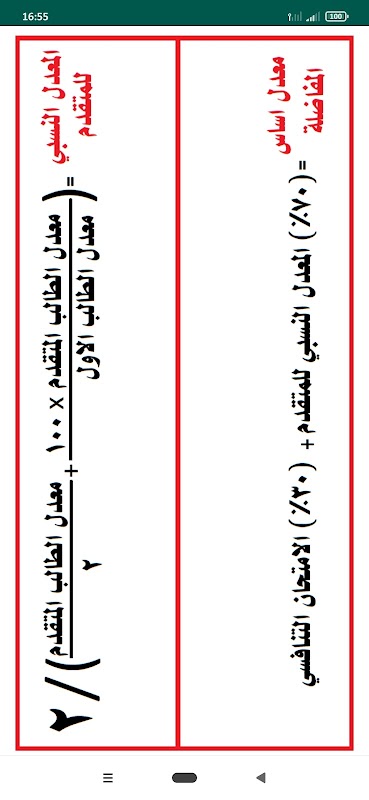 16:55
100
المعدل النسبي
للمتقدم
= ( معدل الطالب المتقدم × ١٠٠ + معدل الطالب المتقدم ) / ٢
معدل الطالب الاول
٢
معدل اساس
المفاضلة
= (٧٠٪) المعدل النسبي للمتقدم + (٣٠٪) الامتحان التنافسي